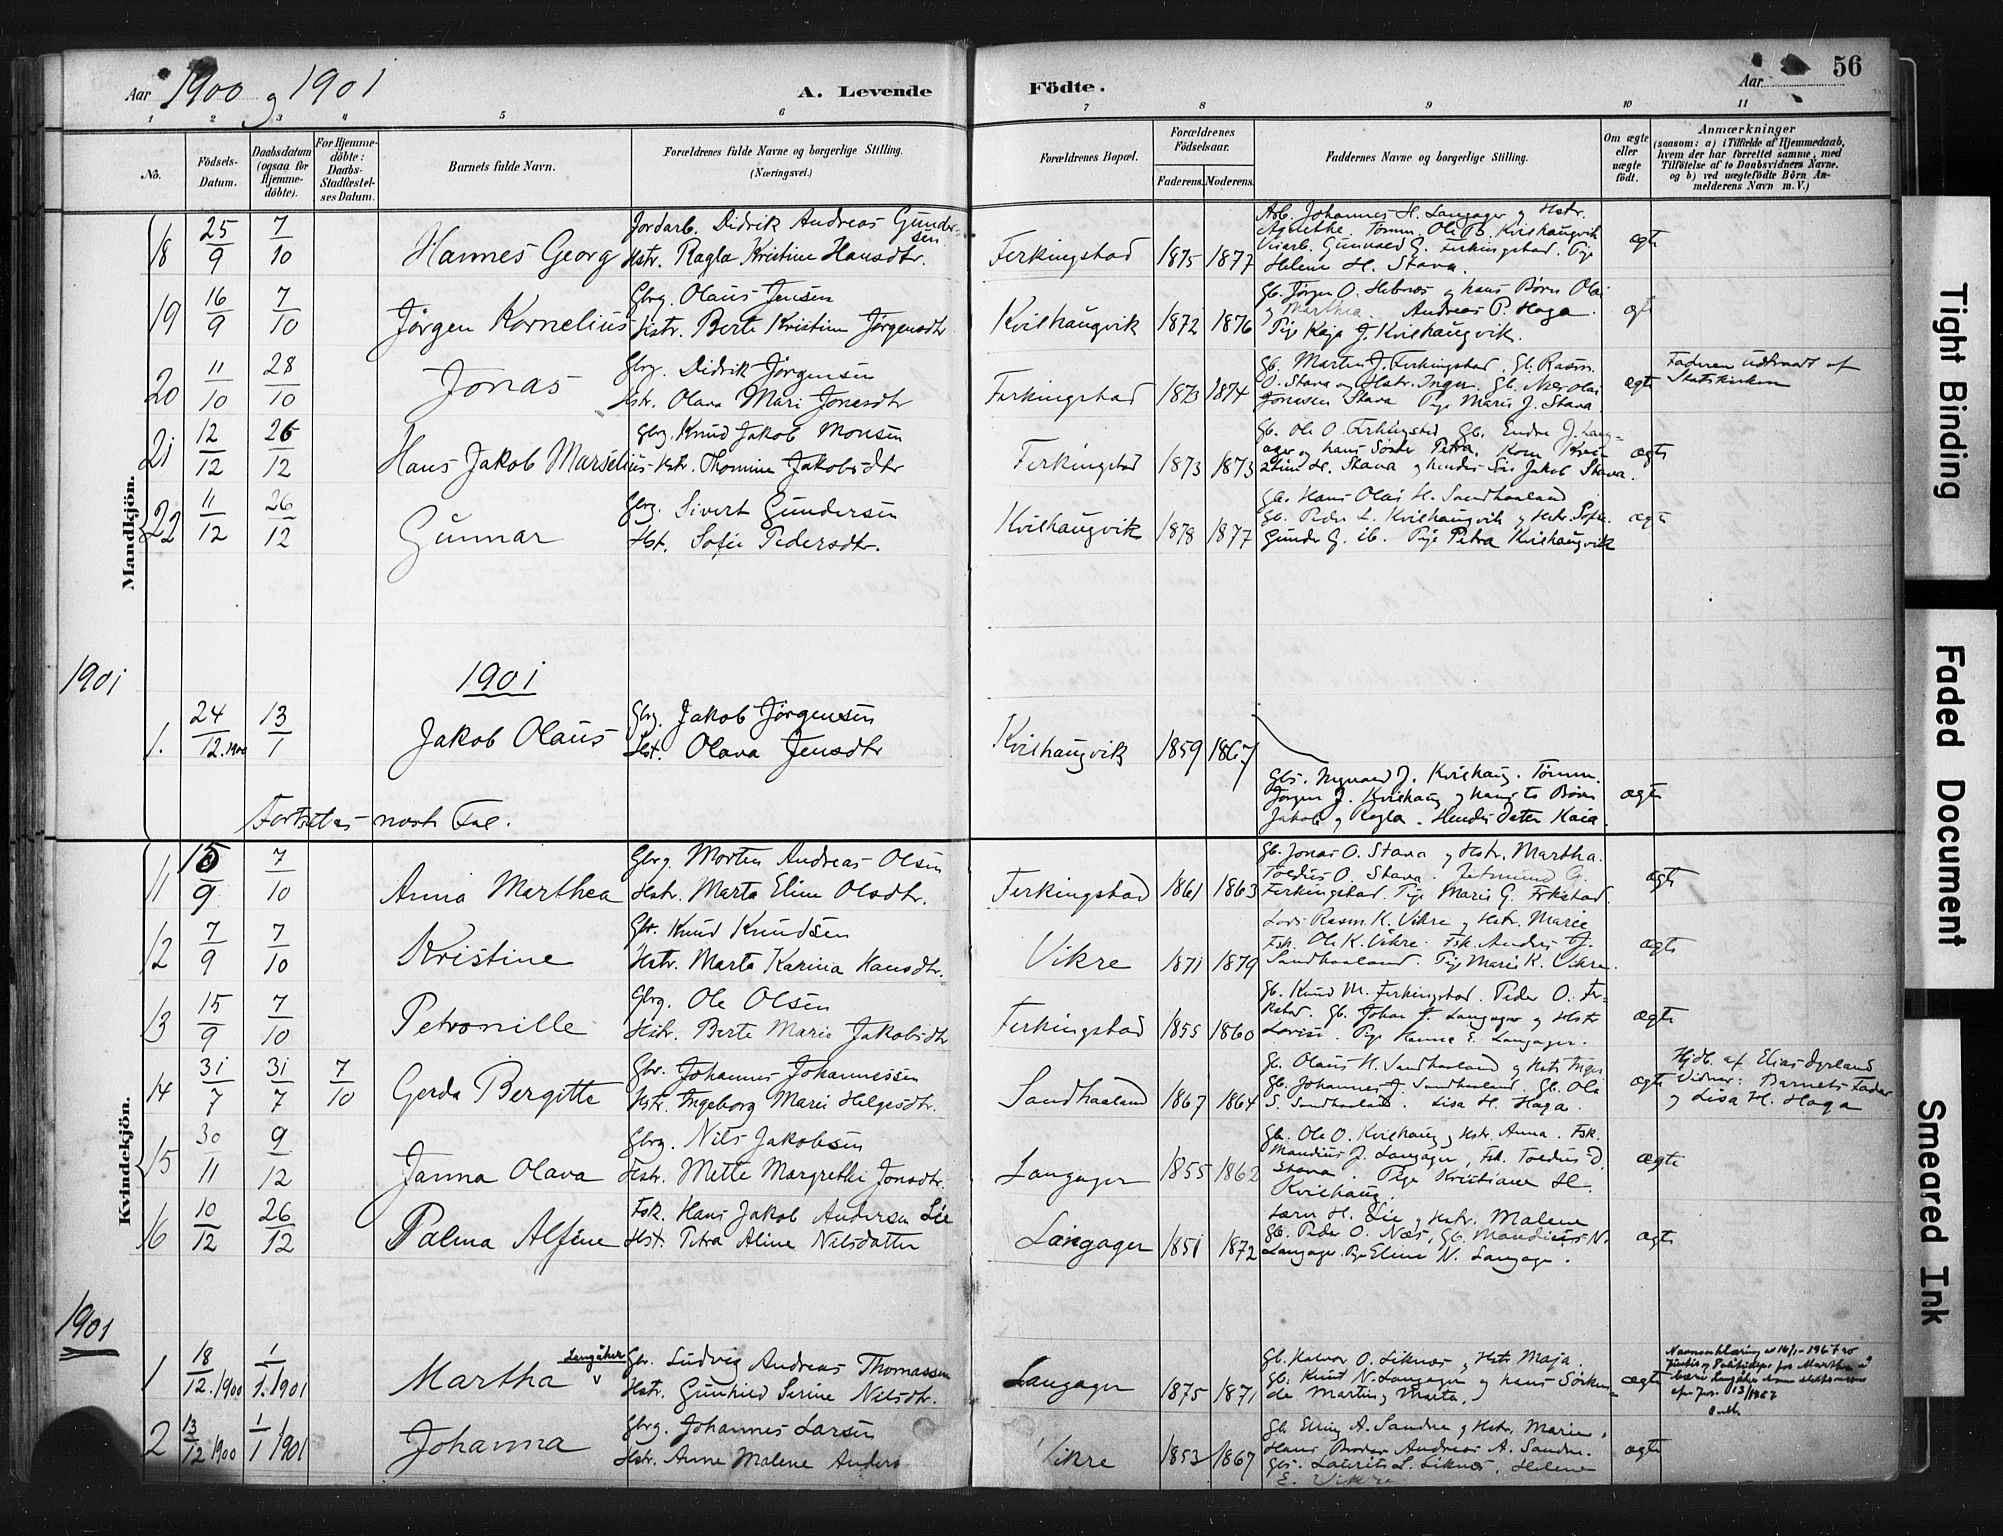 Aar 1900 og 1901
A. Levende Födte.
Aar 56
1 2 3 4 5 6 7 8 9 10 11
No.
Födsels-Datum.
Daabsdatum (ogsaa for Hjemmedöbte).
For Hjemmedöbte: Daabs-Stadfæstelses Datum.
Barnets fulde Navn.
Forældrenes fulde Navne og borgerlige Stilling.
(Næringsvei.)
Forældrenes Bopæl.
Forældrenes Födselsaar.
Faderens. Moderens.
Faddernes Navne og borgerlige Stilling.
Om ægte eller uægte födt.
Anmærkninger
(saasom: a) i Tilfælde af Hjemmedaab, hvem der har forrettet samme, med Tilföielse af to Daabsvidners Navne. og b) ved uægtefödte Börn Anmelderens Navn m. V.)
Mandkjön.
18 25/9 7/10 Hannes Georg
Jordarb. Didrik Andreas Gundersen
Hstr. Ragla Kristine Hansdtr.
Ferkingstad 1875 1877
Arb. Johannes H. Langager og Hstr.
Agnethe. Tømm. Ole B. Kvilhaugvik
Gunvald G. Ferkingstad. Pige
Helene H. Stava.
ægte
19 16/9 7/10 Jørgen Kornelius
Gbrg. Olaus Jensen
Hstr. Berte Kristine Jørgensdtr.
Kvilhaugvik 1872 1876
Gb. Jørgen O. Hebnes og hans Børn Olai
og Marthea. Andreas P. Haga.
Pige Kaja J. Kvilhaugvik.
ægte
20 11/10 28/10 Jonas
Gbrg. Didrik Jørgensen
Hstr. Olava Mari Jonesdtr
Ferkingstad 1873 1874
Gb. Martin J. Ferkingstad. Gb. Rasm.
O. Stava og Hstr. Inger. Gb. Nicolai
Jonesen Stava Pige Maria J. Stava.
ægte
Faderen udtraadt af
Statskirken
21 12/12 26/12 Hans Jakob Marselius
Gbrg. Knud Jakob Monsen
Hstr. Thomine Jakobsdtr
Ferkingstad 1873 1873
Gb. Ole O. Ferkingstad Gb. Endre J. Lang-
ager og hans Søster Petra. Kone
H. Stava og hendes Søn Jakob Stava.
ægte
22 11/12 26/12 Gunnar
Gbrg. Sivert Gundersen
Hst. Sofie Pedersdtr.
Kvilhaugvik 1878 1877
Gb. Hans Olai H. Sandhaaland
Gb. Peder L. Kvilhaugvik og Hstr. Sofie.
Gunder G. ib. Pige Petra Kvilhaugvik
ægte
1901
1901
1. 24/12.1900 13/1 Jakob Olaus
Gbrg. Jakob Jørgensen
Hst. Olava Jensdtr
Kvilhaugvik 1859 1867
Gbs. J. Kvilhaug. Tømm.
Jørgen J. Kvilhaug og hans to Børn
Jakob og Ragla. Hendes Datter Kaia.
ægte
Fortsættes næste Fol.
Kvindekjön.
11 15/9 7/10 Anna Marthea
Gbrg. Morten Andreas Olsen
Hstr. Marta Eline Olsdtr.
Ferkingstad 1861 1863
Gb. Jonas O. Stava og Hstr. Martha.
Toedius O. Stava. G.
Ferkingstad. Pige Marie G. Frkstad.
ægte
12 7/9 7/10 Kristine
Gbr. Knud Knudsen
Hstr. Marta Karina Hansdtr.
Vikre 1871 1879
Lods Rasm. K. Vikre og Hstr. Marie
Fsk. Ole K. Vikre. Fsk. Andreas J.
Sandhaaland. Pige Marie K. Vikre.
ægte
13 15/9 7/10 Petronille
Gbrg. Ole Olsen
Hstr. Berte Marie Jakobsdtr
Ferkingstad 1855 1860
Gb. Knud M. Ferkingstad. Peder O. Fr-
kstad. Gb. Johan J. Langager og Hstr
Lovise. Pige Hanna E. Langager.
ægte
14 31/7 31/7 7/10 Gerda Bergitte
Gbr. Johannes Johannessen
Hstr. Ingeborg Marie Helgesdtr.
Sandhaaland 1867 1864
Gb. Olaus H. Sandhaaland og Hstr Inger
Gb. Johannes J. Sandhaaland. Gb. Ole
S. Sandhaaland. Lisa H. Haga.
ægte
Hjdb. af Elias Dyrland
Vidner: Barnets Fader
og Lisa H. Haga
15 30/11 9/12 Janna Olava
Gbrg. Nils Jakobsen
Hstr. Mette Margrethe Jonsdtr.
Langager 1855 1862
Gb. Ole O. Kvilhaug og Hstr. Anna. Fsk.
Mandius J. Langager, Fsk. Toedius D.
Stava. Pige Kristiane H.
Kvilhaug.
ægte
16 10/12 26/12 Palma Alfine
Fsk. Hans Jakob Andersen Lie
Hst. Petra Aline Nilsdatter
Langager 1851 1872
Lærer H. Lie og Hstr. Malene
Gb. Peder O. Næs, Gb. Mandius N.
Langager. Pige Eline N. Langager.
ægte
1901
1 18/12.1900 1/1.1901 Martha Langåker
Gbr. Ludvig Andreas Thomassen
Hstr. Gunhild Serine Nilsdtr.
Langager 1875 1871
Gb. Halvor O. Liknes og Hstr Maja.
Gb. Knut N. Langager og hans Søsken-
de Martin og Marta.
ægte
Navneerklæring av 16/1-1967
2 13/12 1900 1/1 1901 Johanna
Gbrg. Johannes Larsen
Hstr. Anne Malene Anders
Vikre 1853 1867
Gb. Elling A. Sandve og Hstr. Marie.
Hans Broder Andreas A. Sandve.
Gbs. Laurits L. Liknes. Helene
E. Vikre
ægte
Tight Binding
Faded Document
Smeared Ink